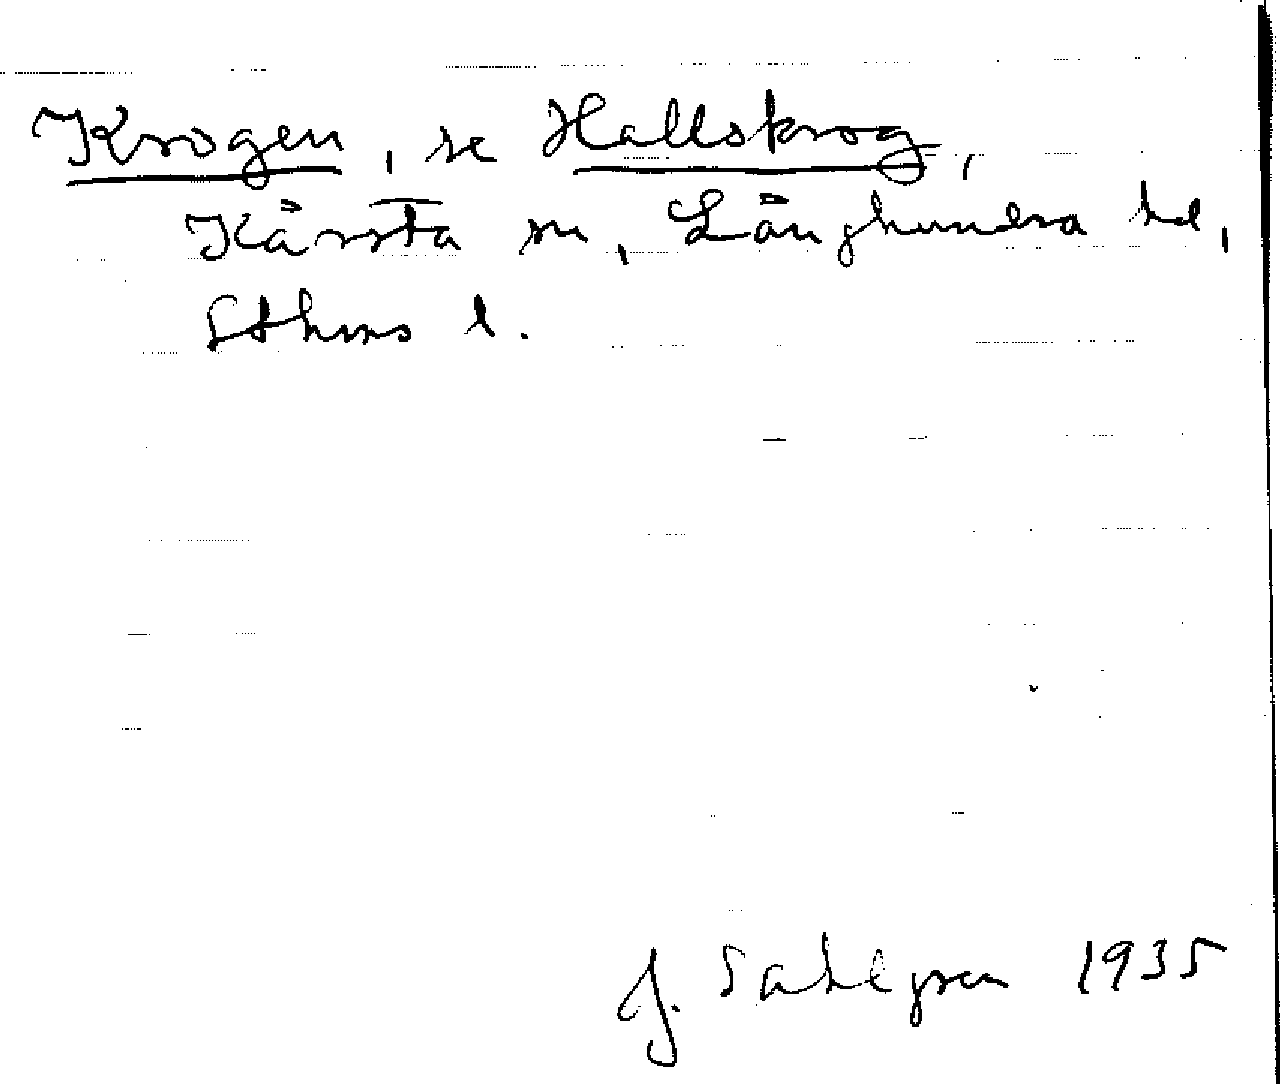 Krogen, se Hallskrog,
Kårsta sn, Långhundra hd,
Sthms l.
J. Sahlgren 1935